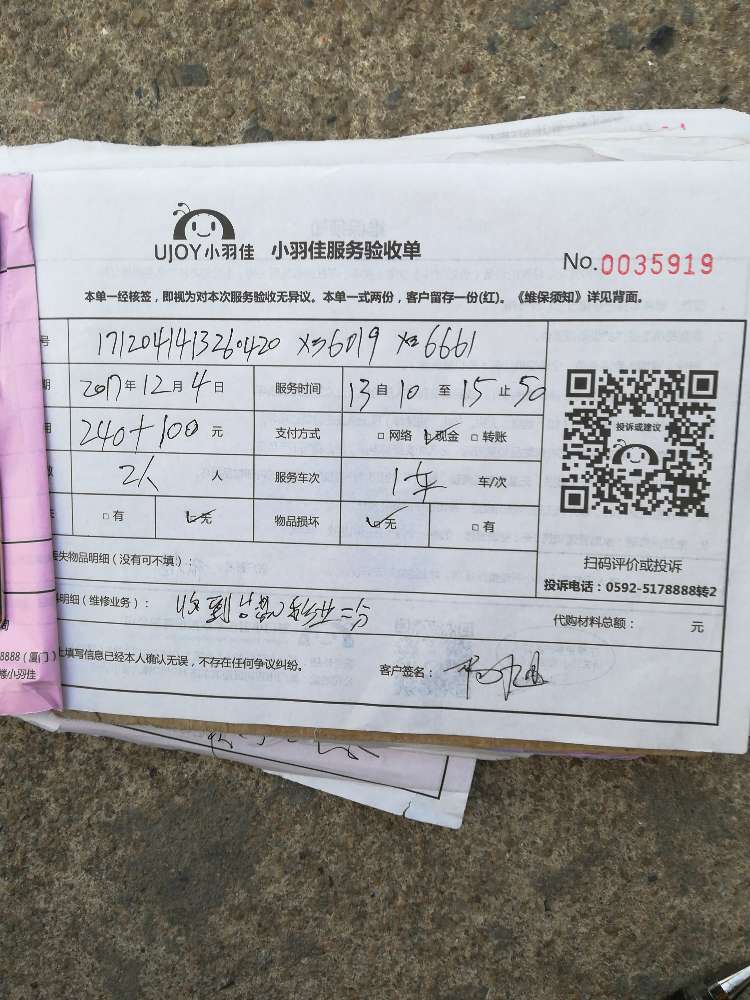 UJOY小羽佳 小羽佳服务验收单
No.0035919
本单一经核签，即视为对本次服务验收无异议。本单一式两份，客户留存一份(红)。《维保须知》详见背面。
号 1712041413260420 6019 6661
期 2017年12月4日 服务时间 13自10至15止50
用 240+100元 支付方式 □网络 ☑现金 □转账
数 2人 人 服务车次 1车 车/次
□有 ☑无 物品损坏 ☑无 □有
投诉或建议
扫码评价或投诉
投诉电话：0592-5178888转2
遗失物品明细（没有可不填）：
料明细（维修业务）： 收到 一分
代购材料总额： 元
上填写信息已经本人确认无误，不存在任何争议纠纷。 客户签名：
间
8888（厦门）
楼小羽佳